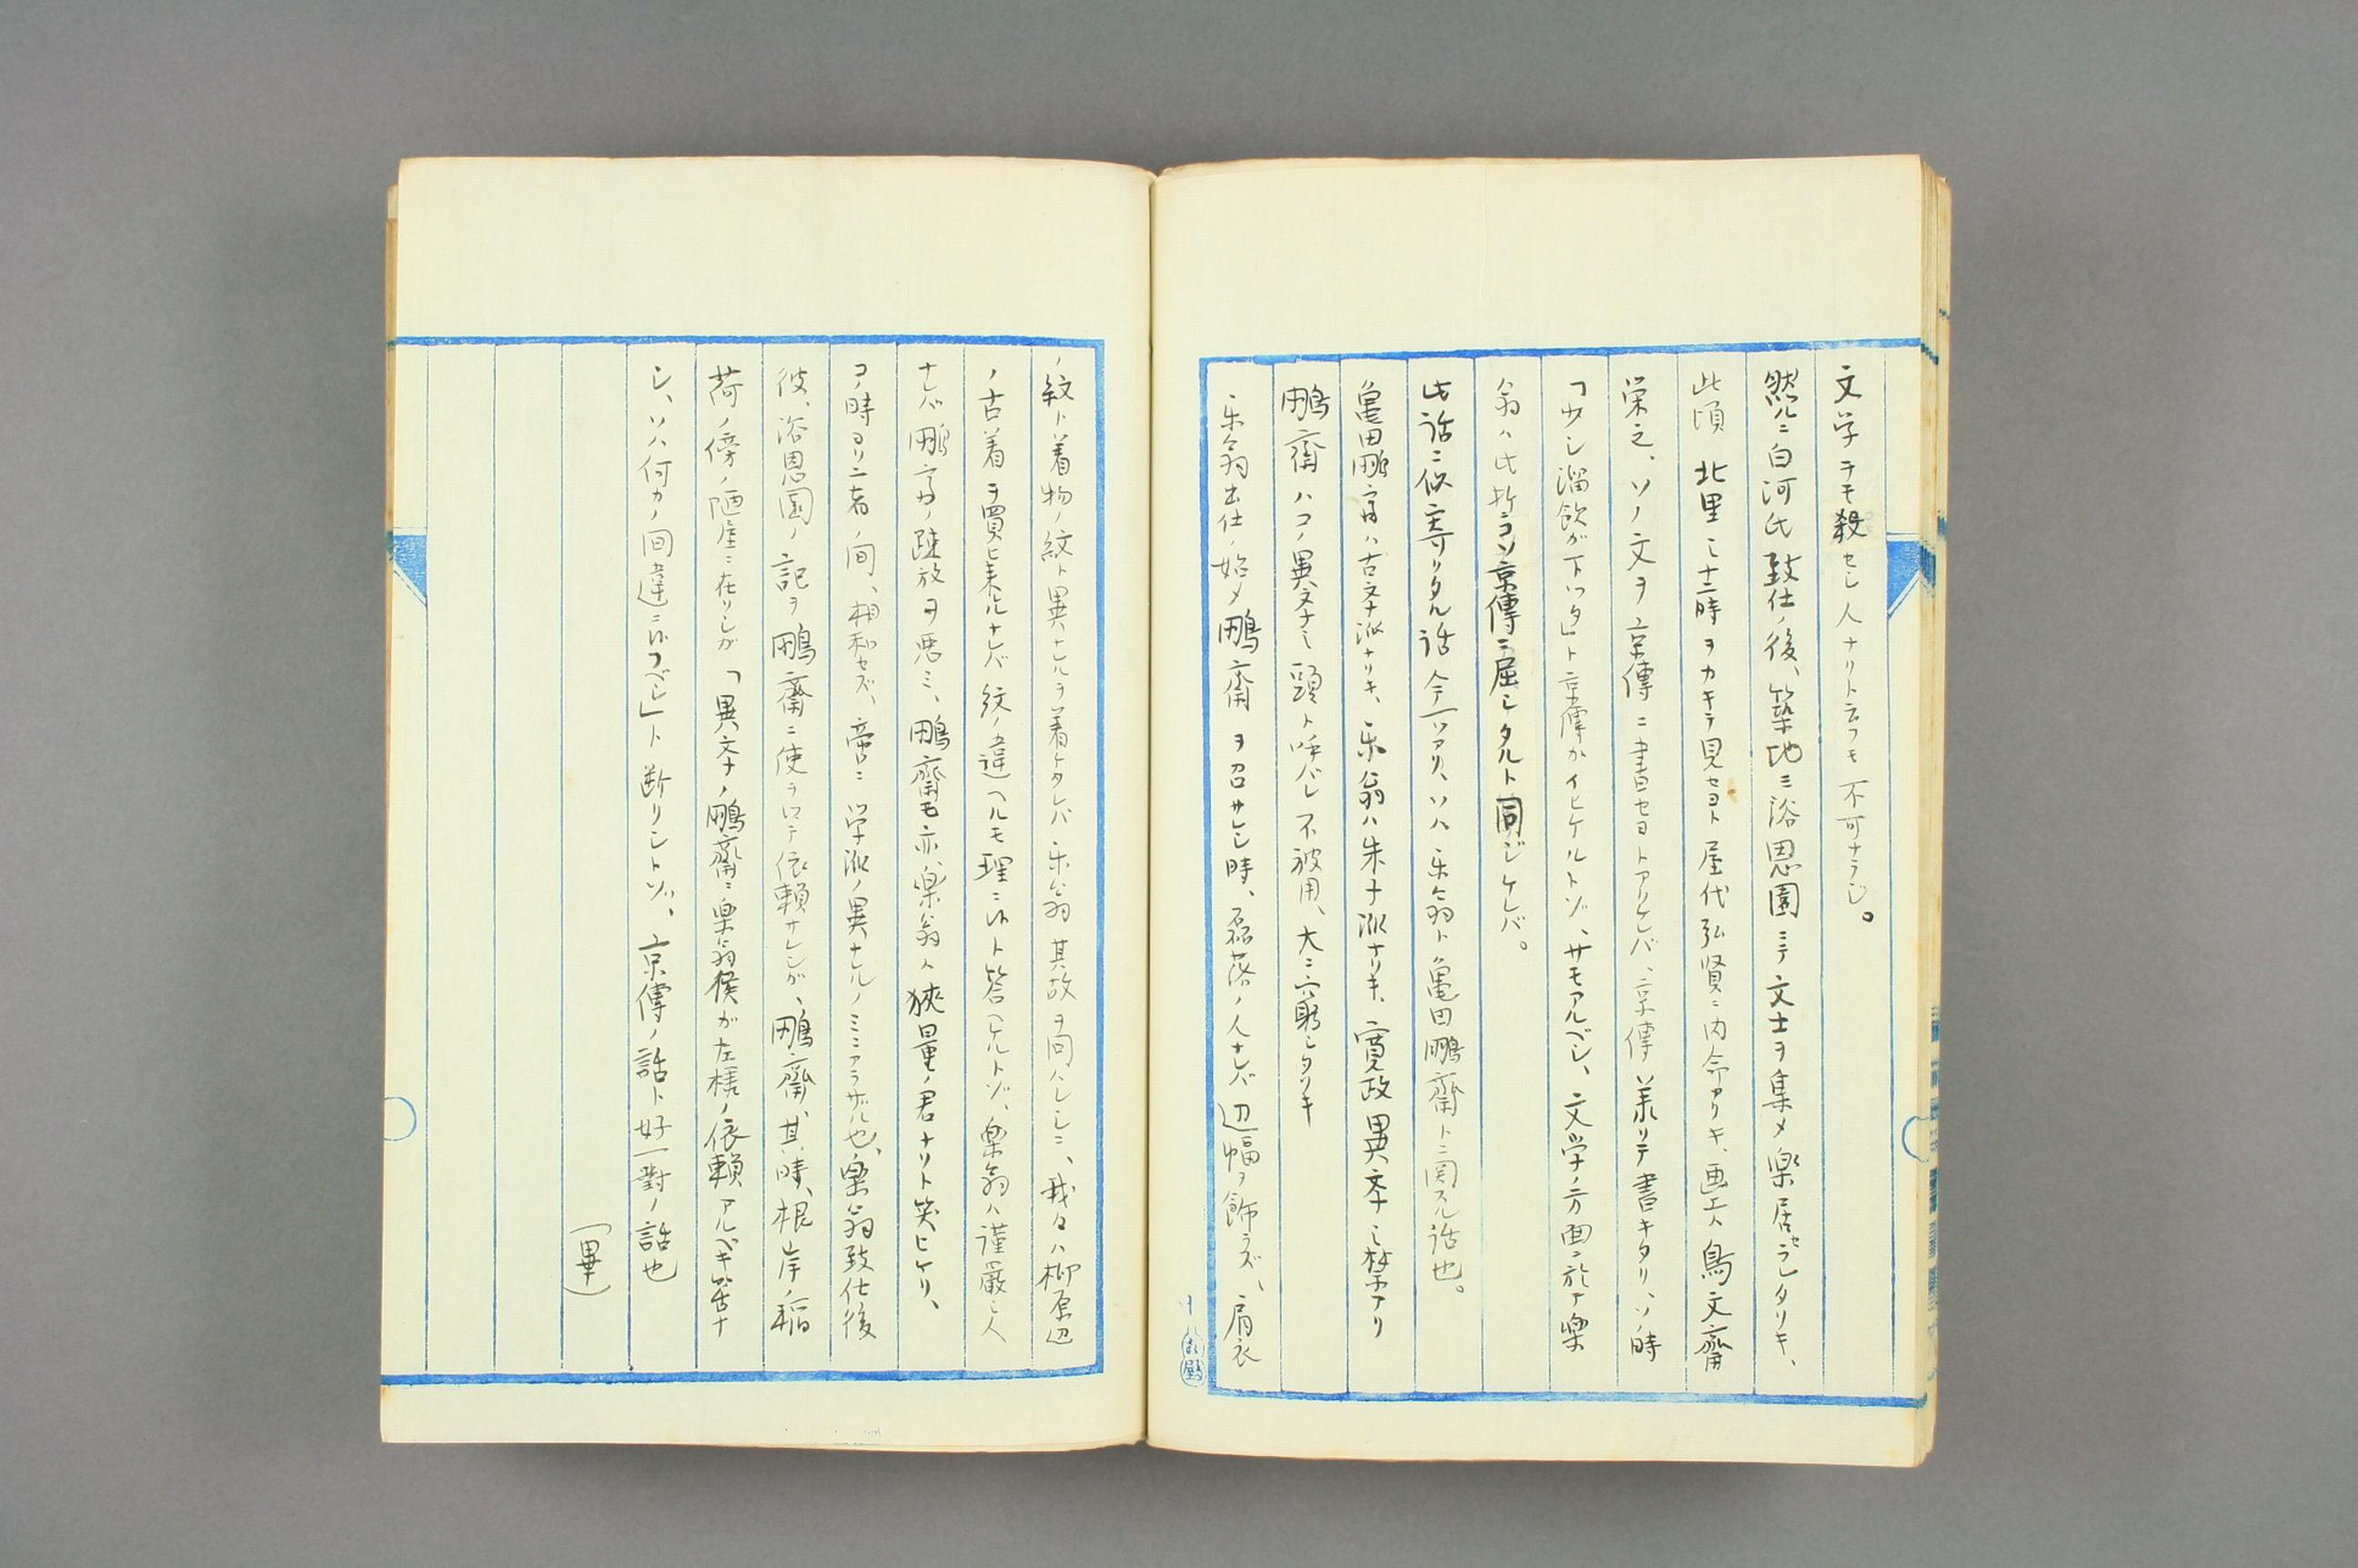 文学ヲモ殺セシ人ナリト云フモ不可ナラジ。
然ルニ白河氏致仕ノ後、築地ニ浴恩園ニテ文士ヲ集メ楽居セラレタリキ、
此頃北里ニ十二時ヲカキテ見セヨト屋代弘賢ニ内命アリキ、画工ハ鳥文齋
栄之、ソノ文ヲ京傳ニ書セヨトアリケレバ、京傳業リテ書キタリ、ソノ時
「少シ溜飲ガ下ツタ」ト京傳ガイヒケルトゾ、サモアルベシ、文学ノ方面ニ於テ楽
翁ハ此折コソ京傳ニ屈シタルト同ジケレバ。
此話ニ似寄リタル話今一ツアリ、ソハ楽翁ト亀田鵬齋トニ関スル話也。
亀田鵬齋ハ古文派ナリキ、楽翁ハ朱子派ナリキ、寛政異学ノ禁アリ
鵬齋ハコノ異学ノ頭ト呼バレ不被用、大ニ窮シタリキ
楽翁出仕ノ始メ鵬齋ヲ召サレシ時、磊落ノ人ナレバ辺幅ヲ飾ラズ、肩衣
ノ紋ト着物ノ紋ト異ナレルヲ着ケタレバ楽翁其故ヲ問ハレシニ、我々ハ柳原辺
ノ古着ヲ買ヒ来ルナレバ紋ノ違ヘルモ理ニ候ト答ヘケルトゾ、楽翁ハ謹厳ノ人
ナレバ鵬齋ノ疎放ヲ悪ミ、鵬齋モ亦、楽翁ハ狭量ノ君ナリト笑ヒケリ、
コノ時ヨリ二者ノ間、相和セズ、啻ニ学派ノ異ナルノミニアラザル也、楽翁致仕後
彼、浴恩園ノ記ヲ鵬齋ニ使ヲ以テ依頼サレシガ、鵬齋、其時、根岸ノ稲
荷ノ傍ノ陋屋ニ在リシガ「異学ノ鵬齋ニ楽翁侯ガ左様ノ依頼アルベキ筈ナ
シ、ソハ何カノ間違ニ候フベシ」ト断リシトゾ、京傳ノ話ト好一對ノ話也
（畢）